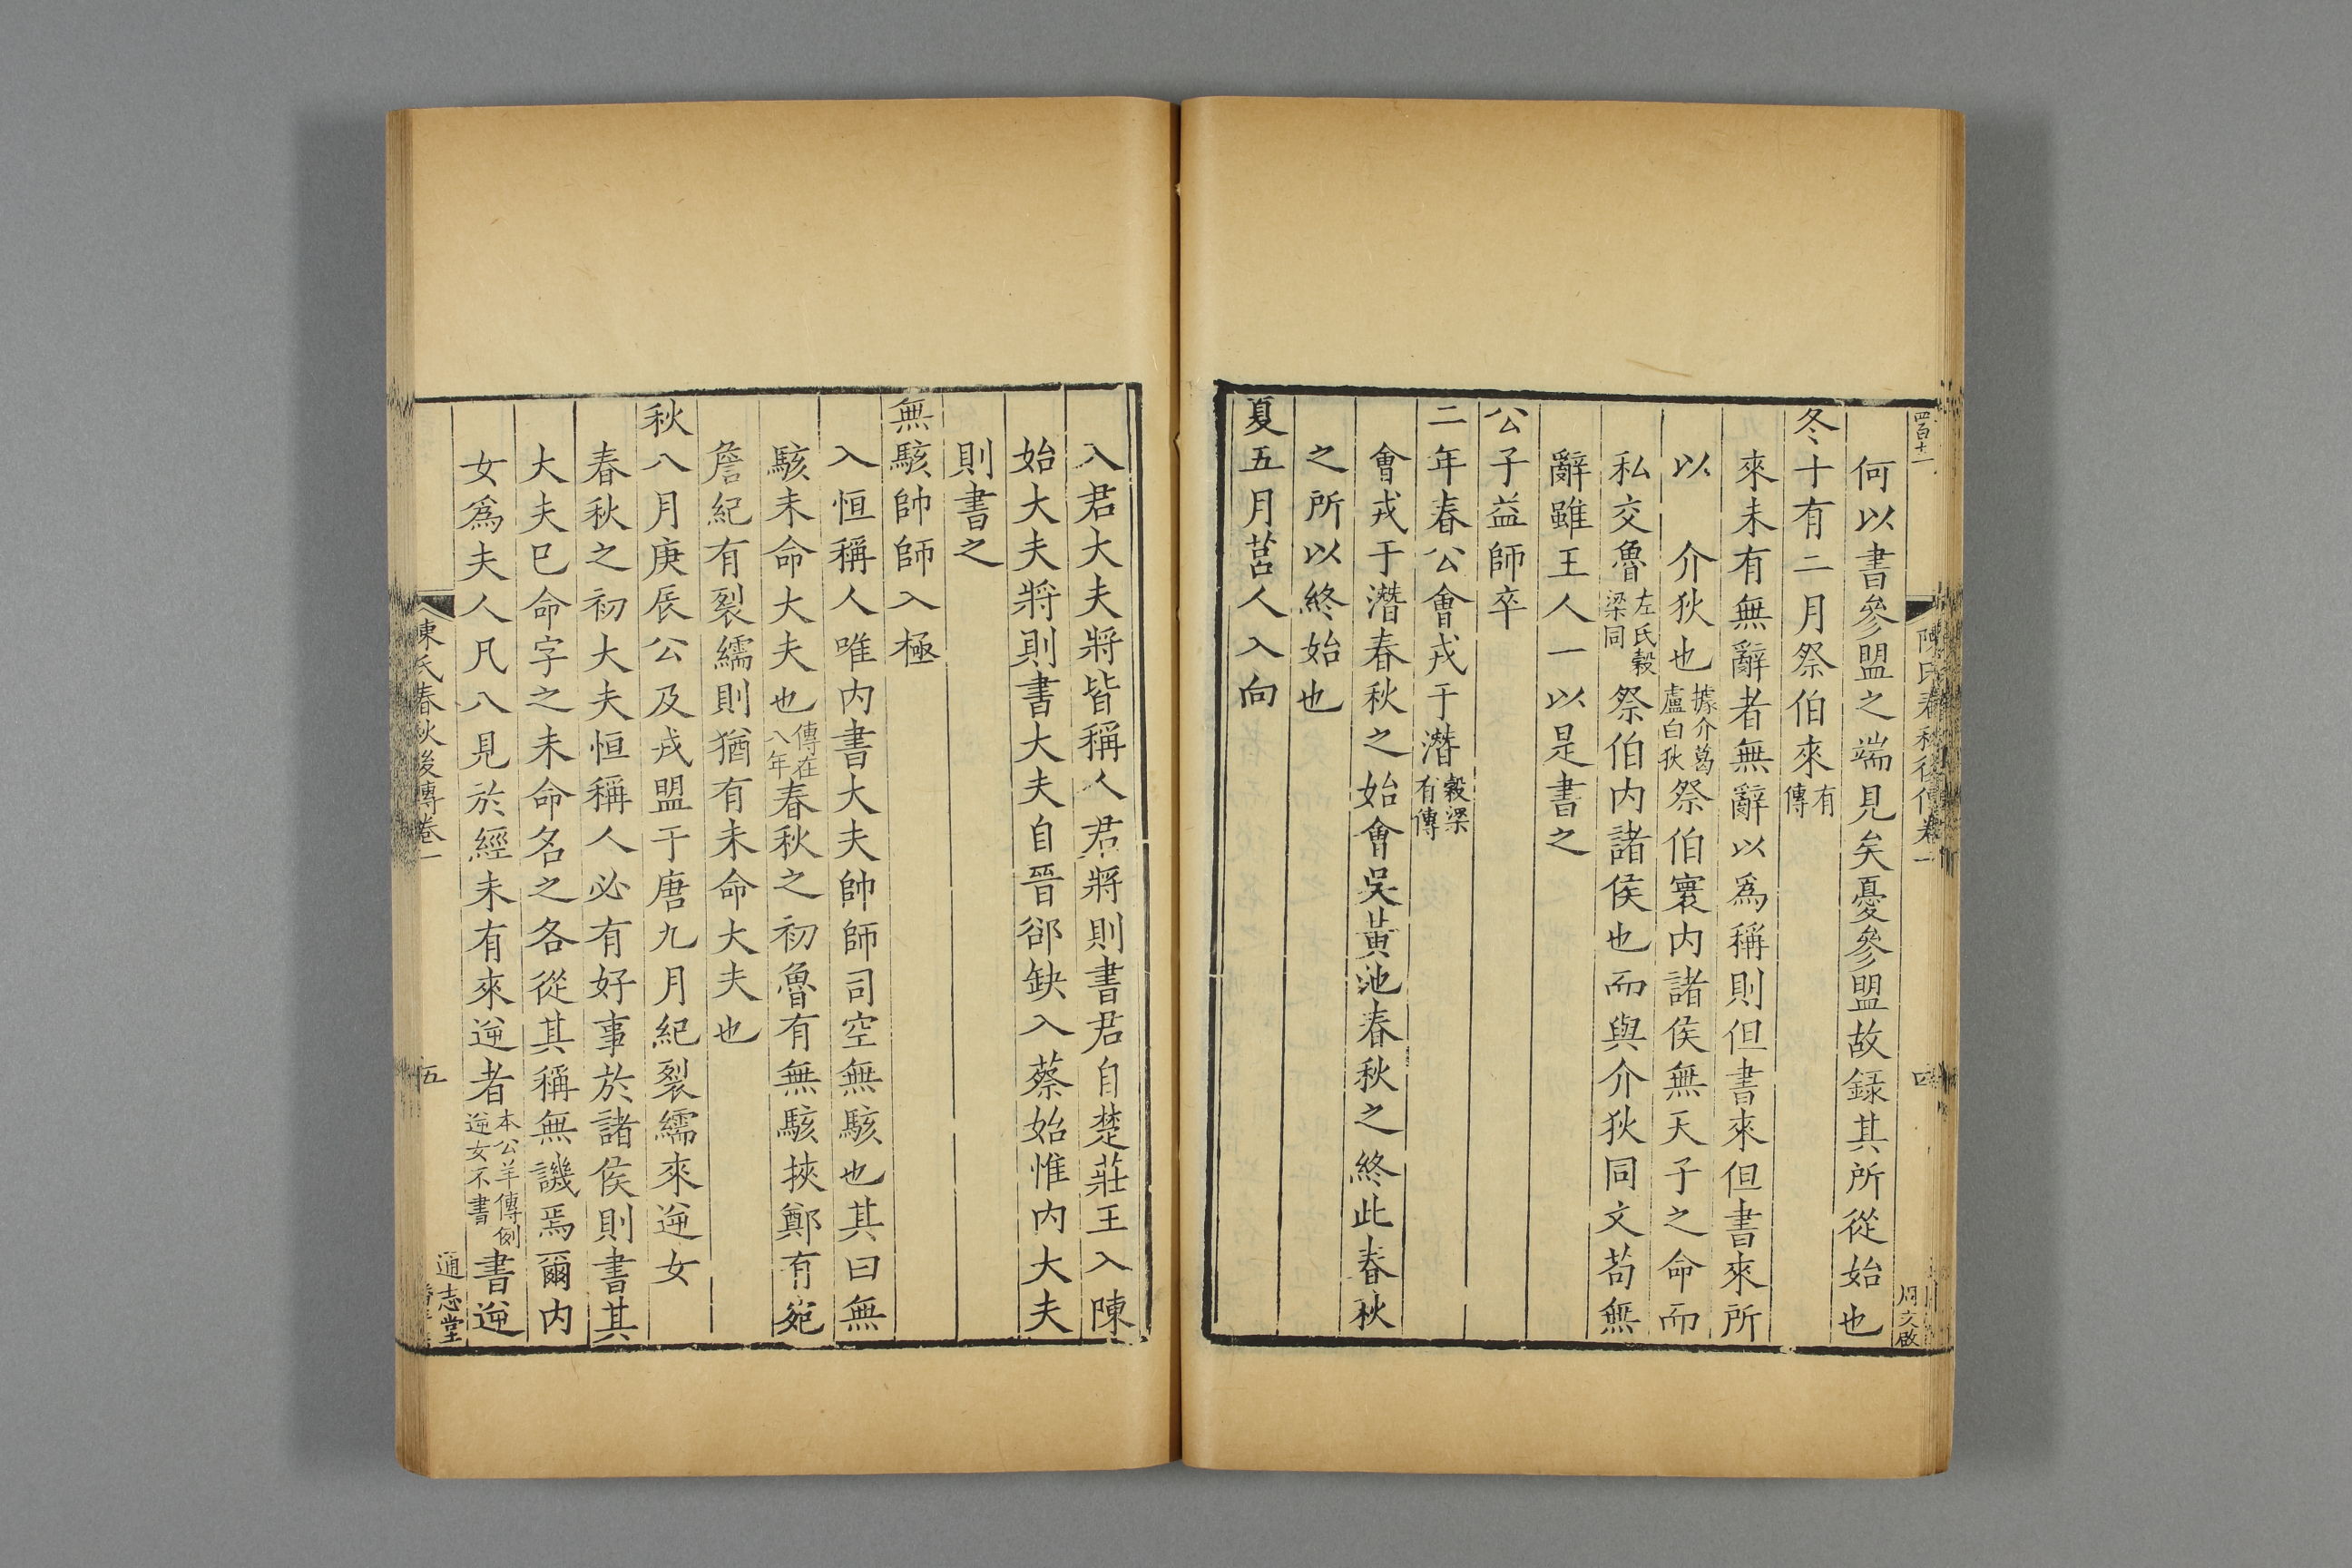 四百十一
陳氏春秋後傳卷一
四
周文啟
何以書參盟之端見矣憂參盟故録其所從始也
冬十有二月祭伯來有傳
來未有無辭者無辭以爲稱則但書來但書來所
以 介狄也據介葛盧白狄祭伯寰内諸侯無天子之命而
私交魯左氏穀梁同祭伯内諸侯也而與介狄同文苟無
辭雖王人一以是書之
公子益師卒
二年春公會戎于潛穀梁有傳
會戎于潛春秋之始會吳黄池春秋之終此春秋
之所以終始也
夏五月莒人入向
入君大夫將皆稱人君將則書君自楚莊王入陳
始大夫將則書大夫自晉郤缺入蔡始惟内大夫
則書之
無駭帥師入極
入恒稱人唯内書大夫帥師司空無駭也其曰無
駭未命大夫也傳在八年春秋之初魯有無駭挾鄭有宛
詹紀有裂繻則猶有未命大夫也
秋八月庚辰公及戎盟于唐九月紀裂繻來逆女
春秋之初大夫恒稱人必有好事於諸侯則書其
大夫巳命字之未命名之各從其稱無譏焉爾内
女爲夫人凡八見於經未有來逆者本公羊傳例逆女不書書逆
陳氏春秋後傳卷一
五
通志堂